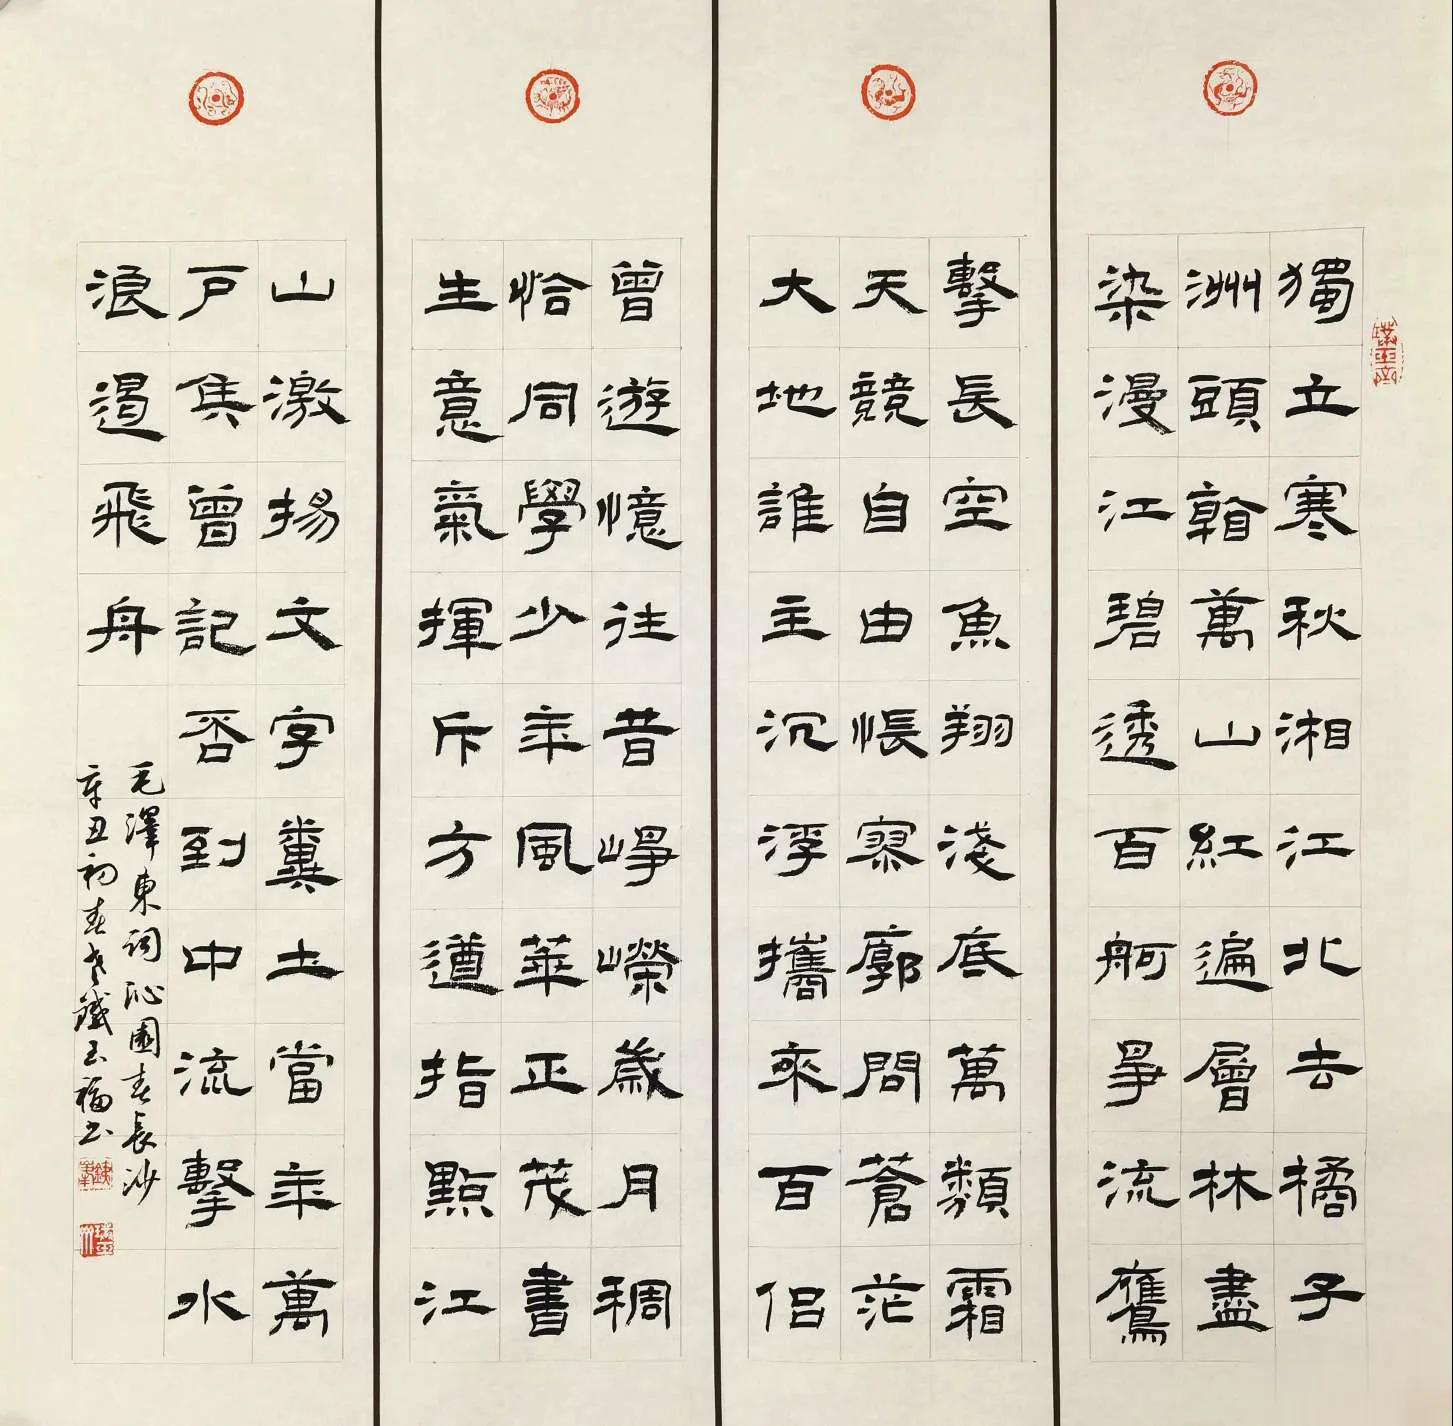 獨立寒秋湘江北去橘子
洲頭看萬山紅遍層林盡
染漫江碧透百舸爭流鷹
擊長空魚翔淺底萬類霜
天競自由悵寥廓問蒼茫
大地誰主沉浮攜來百侶
曾遊憶往昔崢嶸歲月稠
恰同學少年風華正茂書
生意氣揮斥方遒指點江
山激揚文字糞土當年萬
戶侯曾記否到中流擊水
浪遏飛舟
毛澤東詞沁園春長沙
辛丑初春老鐵玉福書